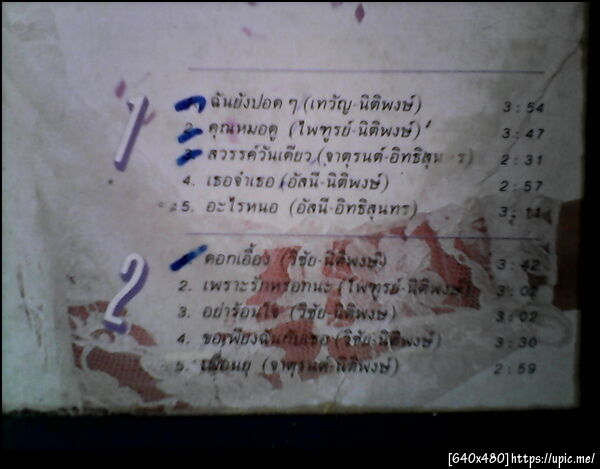 1
1. ฉันยังปอด ๆ (เทวัญ-นิติพงษ์) 3:54
2. คุณหมอดู (ไพฑูรย์-นิติพงษ์) 3:47
3. สวรรค์วันเดียว (จาตุรนต์-อิทธิสุนทร) 2:31
4. เธอจ๋าเธอ (อัสนี-นิติพงษ์) 2:57
5. อะไรหนอ (อัสนี-อิทธิสุนทร)
2
ดอกเอื้อง (วิชัย-นิติพงษ์) 3:42
2. เพราะรักหรอกนะ (ไพฑูรย์-นิติพงษ์)
3. อย่าร้อนใจ (วิชัย-นิติพงษ์) 3:02
4. ขอเพียงฉันกับเธอ (วิชัย-นิติพงษ์) 3:30
5. เผื่อนยุ (จาตุรนต์-นิติพงษ์) 2:59
[640x480]https://upic.me/